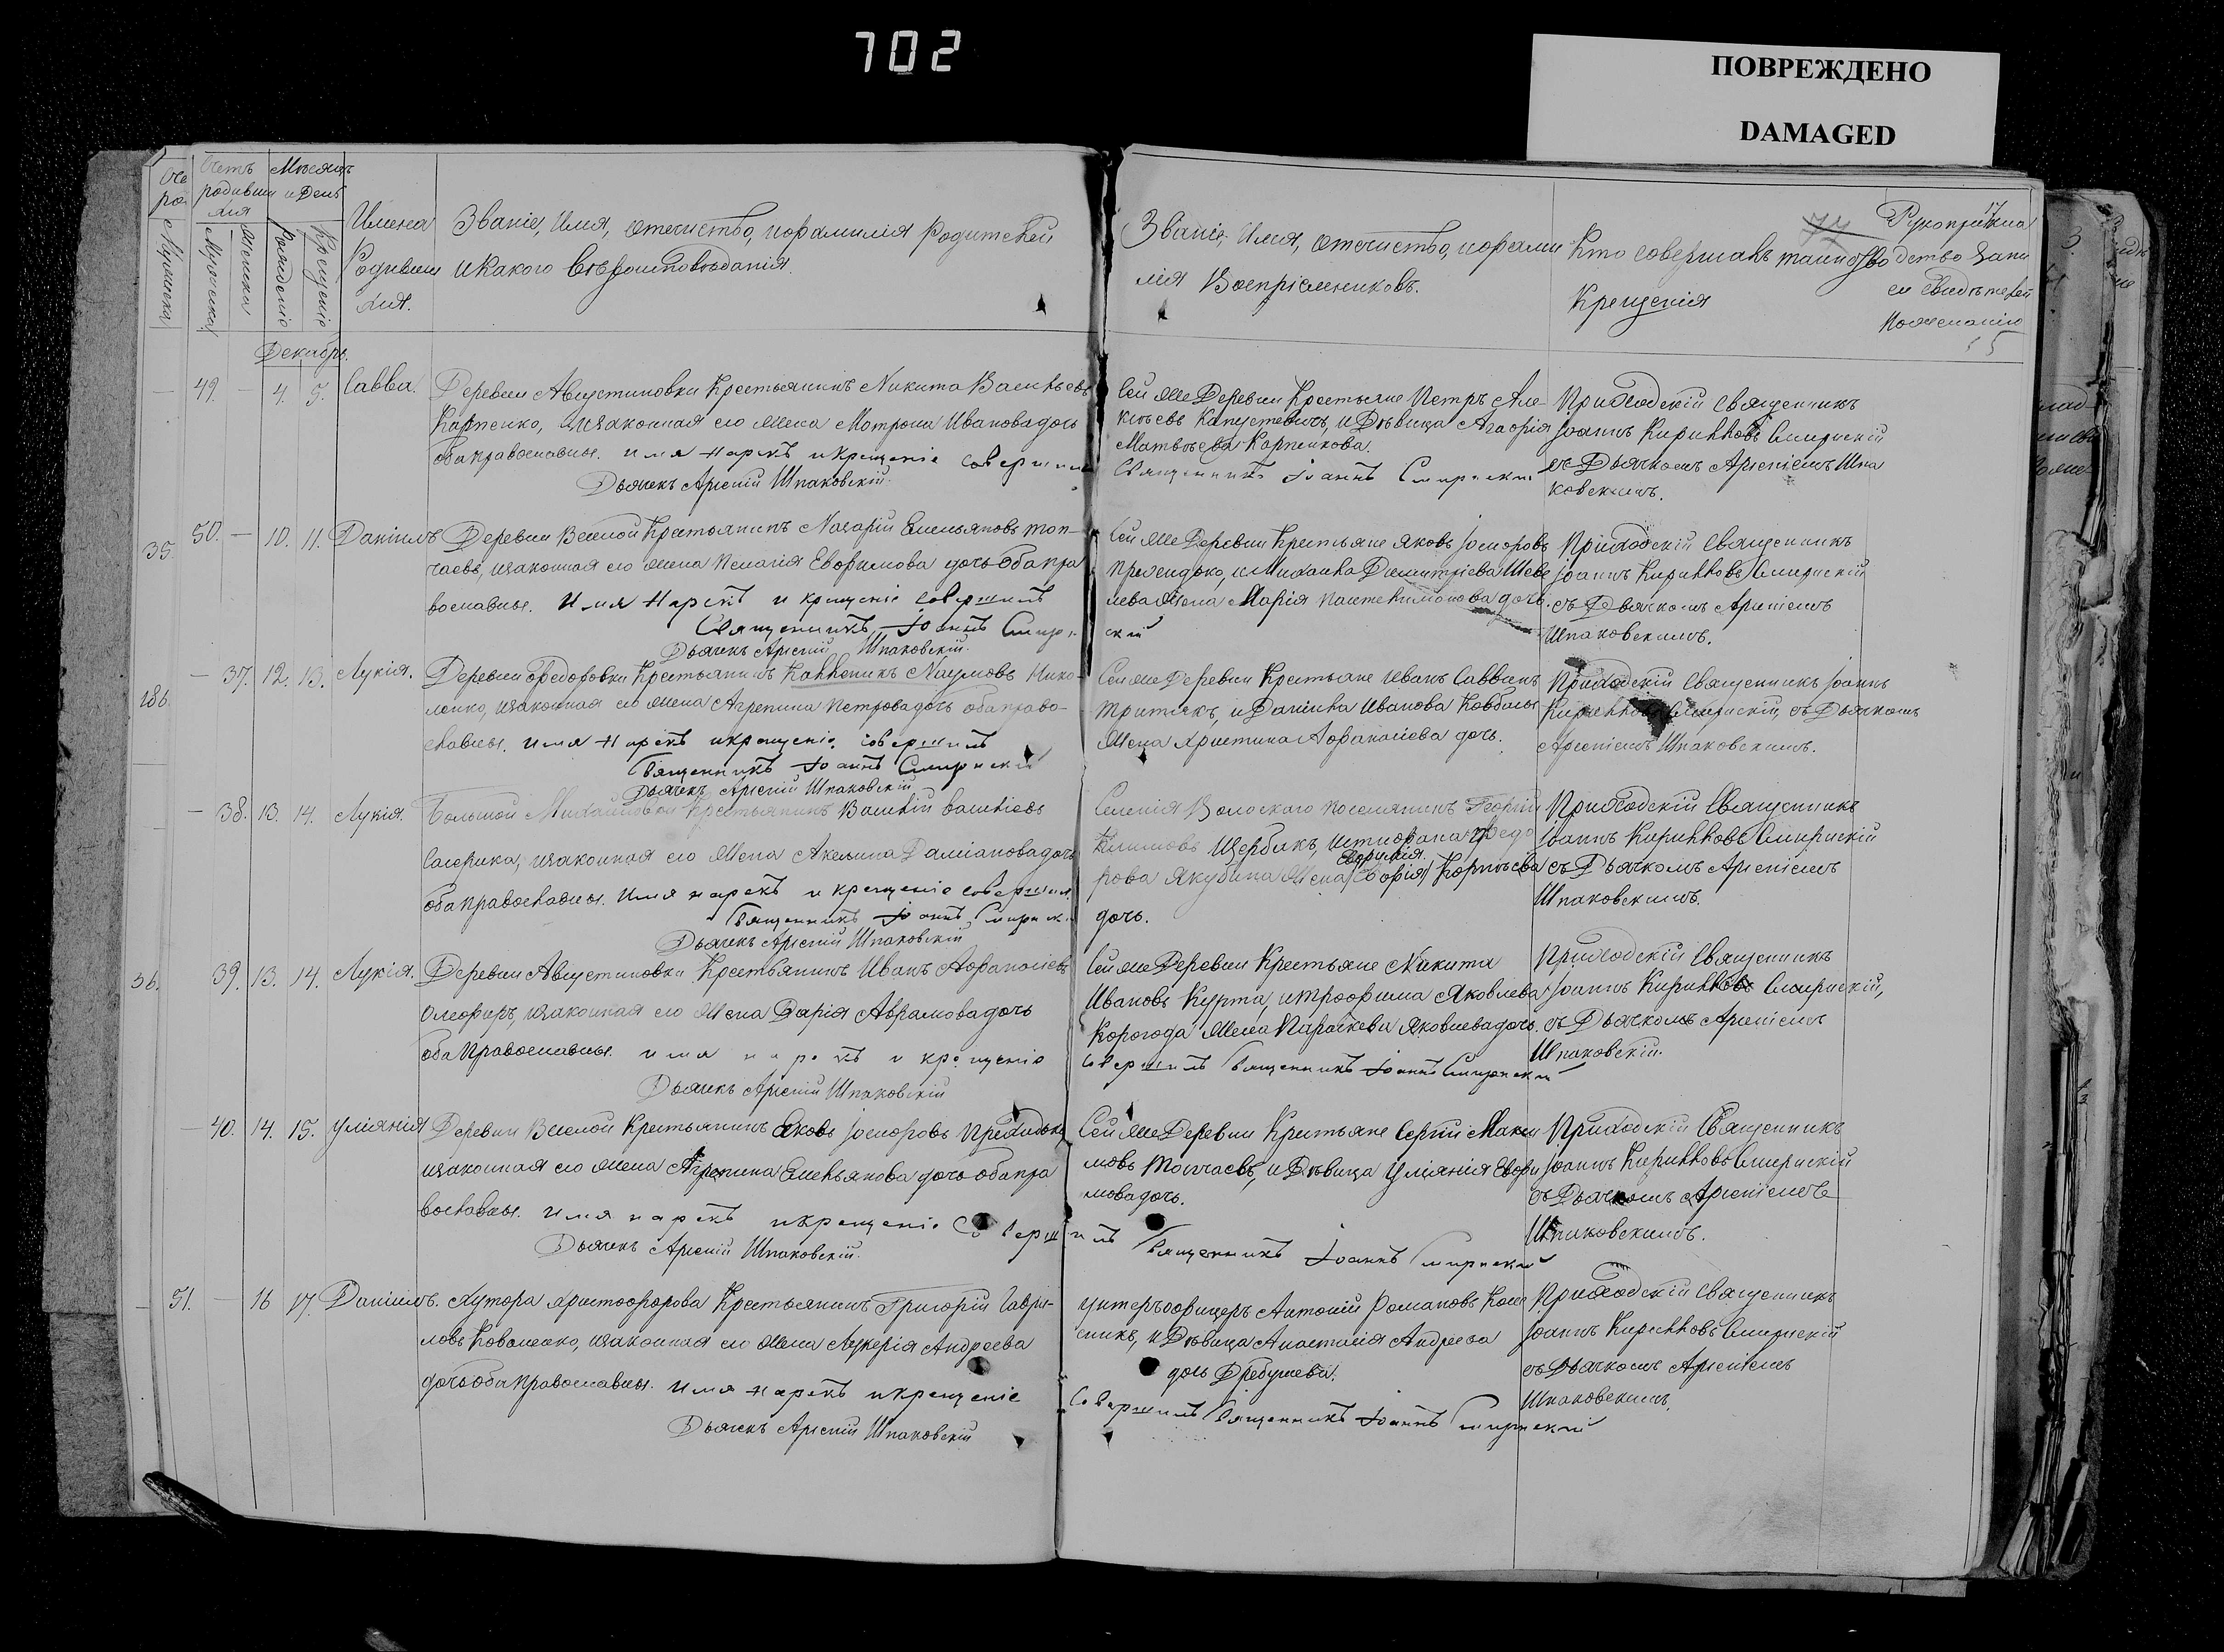 702
ПОВРЕЖДЕНО
DAMAGED
Счетъ родивши хся
Мѣсяцъ и День
Мужеска
Женска
Рожденіе
Крещеніе
Имена
Родивши
хся.
Званіе, Имя, отечиство, ифамилія Родителей
икакого Вѣроисповѣданія.
Званіе, Имя, отечиство, ифами
лія Воспріемниковъ.
Кто совершалъ таинство
Крещенія
Рукоприкла
дство Запи
си свидѣтелей
Пожеланію
Декабрь.
49. — 4. 5. Савва.
Деревни Августиновки Крестьянинъ Никита Васильевъ
Карпенко, изаконная его жена Мотрона Иванова дочь
оба православные. имя нарекъ икрещеніе совершилъ
Дьячекъ Арсеній Шпаковскій.
Сей же Деревни Крестьяне Петръ Але-
ксѣевъ Капустевичъ, и Дѣвица Агафія
Матвѣева Карпенкова.
Священникъ Іоаннъ Смирнскій
Приходскій Священникъ
Іоаннъ Кирилловъ Смирнскій
съ Дьячкомъ Арсеніемъ Шпа
ковскимъ.
35.
50. — 10. 11. Даніилъ
Деревни Веселой Крестьянинъ Назарій Емельяновъ Топ-
чаевъ, изаконная его жена Пелагія Евфимова дочь оба пра
вославные. Имя Нарекъ и крещеніе совершилъ
Священникъ Іоаннъ Смирн
скій
Дьячекъ Арсеній Шпаковскій.
Сей же Деревни Крестьяне Яковъ Іосифовъ
Прехидько, и Михаила Димитріева Шеве
лева жена Марія Пантелимонова дочь.
Приходскій Священникъ
Іоаннъ Кирилловъ Смирнскій
съ Дьячкомъ Арсеніемъ
Шпаковскимъ.
186.
— 37. 12. 13. Лукія.
Деревни Федоровки Крестьянинъ Каленикъ Наумовъ Нико-
ленко, изаконная его жена Агрепина Петрова дочь оба право-
славные. имя Нарекъ икрещеніе совершилъ
Священникъ Іоаннъ Смирнскій
Дьячекъ Арсеній Шпаковскій
Сей же Деревни Крестьяне Иванъ Саввинъ
Тритякъ, и Даніила Иванова Ковбасы
Жена Христина Афанасіева дочь.
Приходскій Священникъ Іоаннъ
Кирилловъ Смирнскій, съ Дьячкомъ
Арсеніемъ Шпаковскимъ.
— 38. 13. 14. Лукія.
Большой Михайловки Крестьянинъ Василій Василіевъ
изаконная его Жена Акелина Даміанова дочь
оба православные. Имя нарекъ и крещеніе совершилъ
Священникъ Іоаннъ Смирнскій
Дьячекъ Арсеній Шпаковскій
Селенія Волоского поселянинъ Георгій
Климовъ Щербакъ, и Тимофана Федо
рова Якубина Жена Евфимія Корнѣева
дочь.
Приходскій Священникъ
Іоаннъ Кирилловъ Смирнскій
съ Дьячкомъ Арсеніемъ
Шпаковскимъ.
36.
39. 13. 14. Лукія.
Деревни Августиновки Крестьянинъ Иванъ Афанасіевъ
изаконная его Жена Дарія Аврамова дочь
оба Православные. имя нарекъ и крещеніе
Дьячекъ Арсеній Шпаковскій
Сей же Деревни Крестьяне Никита
Ивановъ Курта, и Трофима Яковлева
Корогода Жена Параскева Яковлева дочь.
совершилъ Священникъ Іоаннъ Смирнскій
Приходскій Священникъ
Іоаннъ Кирилловъ Смирнскій,
съ Дьячкомъ Арсеніемъ
Шпаковскій.
— 40. 14. 15. Уліянія
Деревни Веселой Крестьянинъ Яковъ Іосифовъ Прехидько
изаконная его жена Агрепина Емельянова дочь оба пра
вославные. Имя нарекъ икрещеніе совершилъ Священникъ Іоаннъ Смирнскій
Дьячекъ Арсеній Шпаковскій.
Сей же Деревни Крестьяне Сергій Макси
мовъ Топчаевъ, и Дѣвица Уліянія Евфи
мова дочь.
Приходскій Священникъ
Іоаннъ Кирилловъ Смирнскій
съ Дьячкомъ Арсеніемъ
Шпаковскимъ.
51. — 16 17. Даніилъ.
Хутора Христофорова Крестьянинъ Григорій Гаври-
ловъ Коваленко, изаконная его жена Лукерія Андреева
дочь оба православные. Имя нарекъ икрещеніе
Дьячекъ Арсеній Шпаковскій
Унтеръофицеръ Антоній Романовъ Коле
сникъ, и Дѣвица Анастасія Андреева
дочь Дребушева.
Совершилъ Священникъ Іоаннъ Смирнскій
Приходскій Священникъ
Іоаннъ Кирилловъ Смирнскій
съ Дьячкомъ Арсеніемъ
Шпаковскимъ.